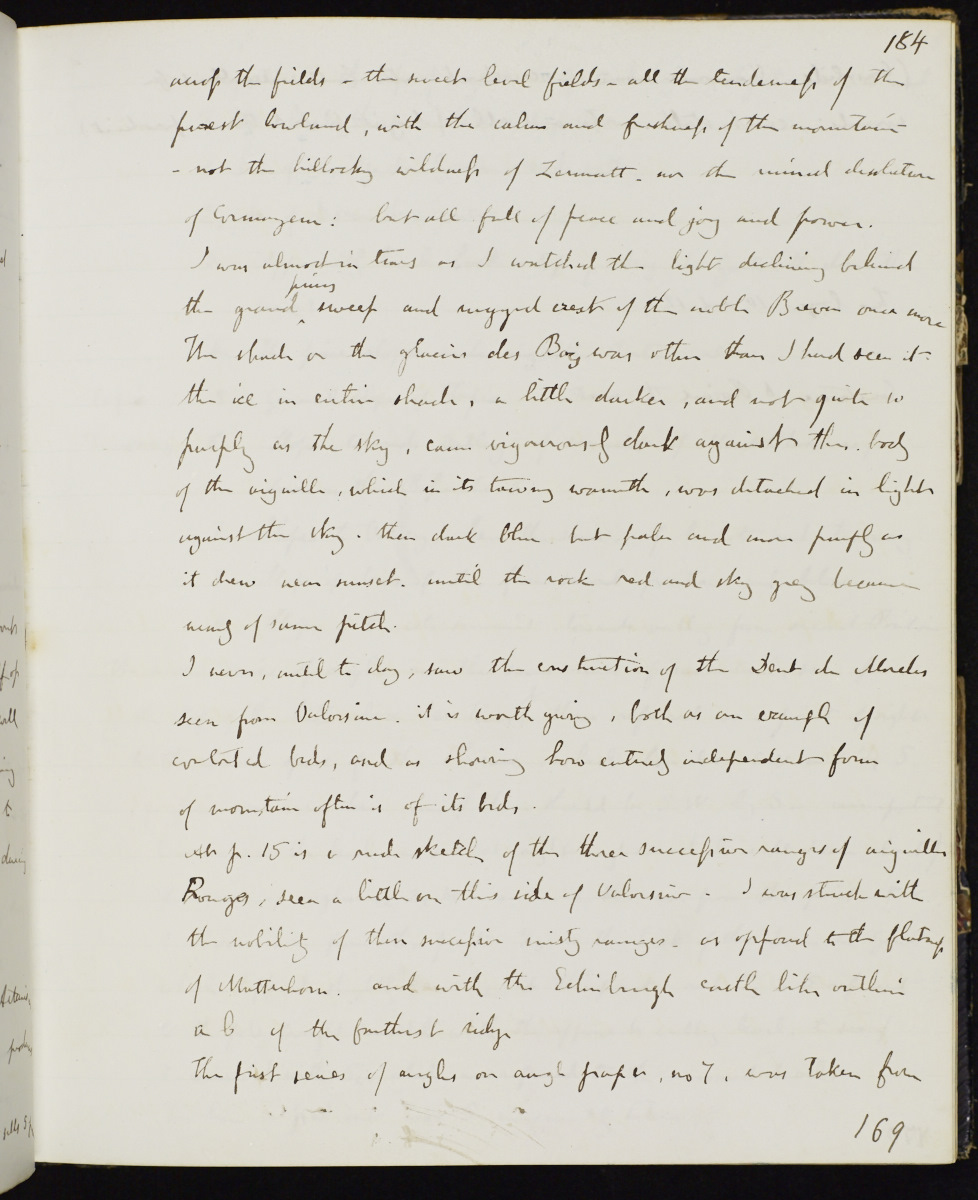 184
across the fields - the sweet level fields - all the tenderness of the
purest lowland, with the calm and freshness of the mountain
- not the hillocky wildness of Zermatt. nor the mined desolation
of Cormayeur: but all full of peace and joy and power.
I was almost in tears as I watched the light declining behind
pines
the grand sweep and rugged crest of the noble Breven once more
The shade on the glacier des Bois was other than I had seen it.
the ice in entire shade, a little darker, and not quite so
purply as the sky, came vigourously dark against the body
of the aiguille, which in its tawny warmth, was detached in light
against the sky. then dark blue but paler and more purply as
it drew near sunset. until the rock red and sky grey became
nearly of same pitch.
I never, until to day, saw the construction of the Dent de Morcles
seen from Valorsine. it is worth giving, both as an example of
contorted beds, and as showing how entirely independent form
of mountain often is of its beds.
At p. 15 is a rude sketch of the three successive ranges of aiguilles
Rouges, seen a little on this side of Valorsine. I was struck with
the nobility of these successive misty ranges. as opposed to the
of Matterhorn. and with the Edinburgh castle like outline
a b of the farthest ridge
The first series of angles on angle paper, no 7, was taken from
169